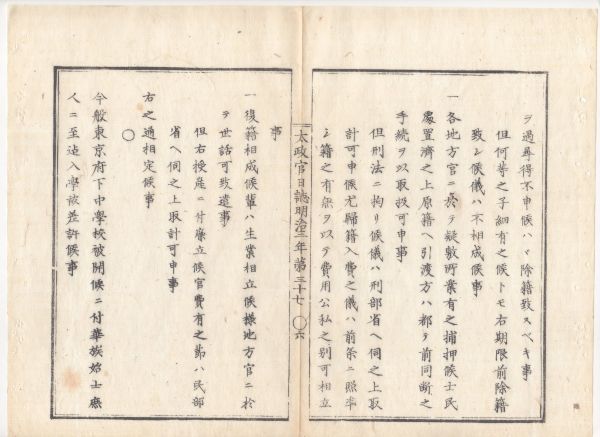 ヲ過尋得不申候ハヽ除籍致スベキ事
但何等之子細有之候トモ右期限前除籍
致シ候儀ハ不相成候事
一各地方官ニ於テ疑敷所業有之捕押候士民
處置濟之上原籍ヘ引渡方ハ都テ前同断之
手続ヲ以取扱可申事
但刑法ニ拘リ候儀ハ刑部省ヘ伺之上取
計可申候尤歸籍入費之儀ハ前条ニ照準
シ籍之有無ヲ以テ費用公私之別可相立
事
太政官日誌明治三年第三十七 〇六
一復籍相成候輩ハ生業相立候様地方官ニ於
テ世話可致遣事
但右授産ニ付廉立候官費有之節ハ民部
省ヘ伺之上取計可申事
右之通相定候事
〇
今般東京府下中學校被開候ニ付華族始士庶
人ニ至迠入學被差許候事